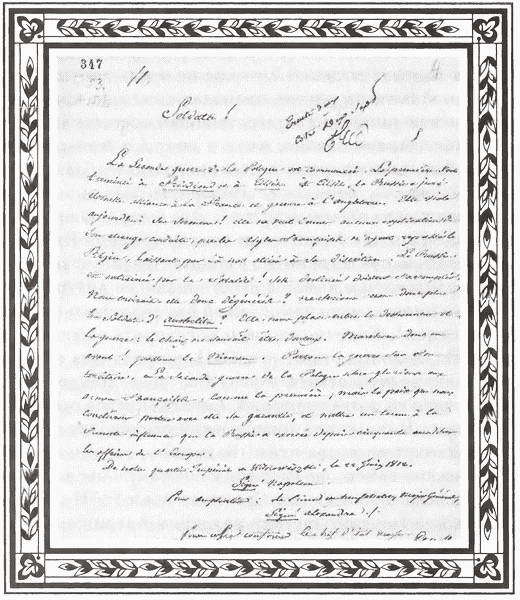 347
Soldats !
La Seconde guerre de la Pologne est commencée. La première s'est
terminée à Friedland et à Tilsit : à Tilsit, la Russie a juré
éternelle alliance à la France et guerre à l'Angleterre. Elle viole
aujourd'hui ses Serments ! Elle ne veut donner aucune explication de
son étrange conduite, que les Aigles françaises n'ayent repassé le
Rhin, laissant par là nos alliés à sa discrétion. La Russie
est entrainée par la fatalité ! Ses destinées doivent s'accomplir.
Nous croirait-elle donc dégénérés ? ne serions-nous donc plus
les Soldats d'Austerlitz ? Elle nous place entre le deshonneur et
la guerre : le choix ne saurait être douteux. Marchons donc en
avant ! passons le Niemen. Portons la guerre sur son
territoire. La Seconde guerre de la Pologne sera glorieuse aux
armes françaises, comme la première ; mais la paix que nous
conclurons portera avec elle sa garantie, et mettra un terme à la
influence que la Russie a exercée depuis cinquante ans sur
les affaires de l'Europe.
De notre quartier Impérial de le 22 Juin 1812.
Signé Napoléon
Pour ampliation : le Prince de Major Général,
Signé Alexandre
Pour copie conforme le chef d'État major